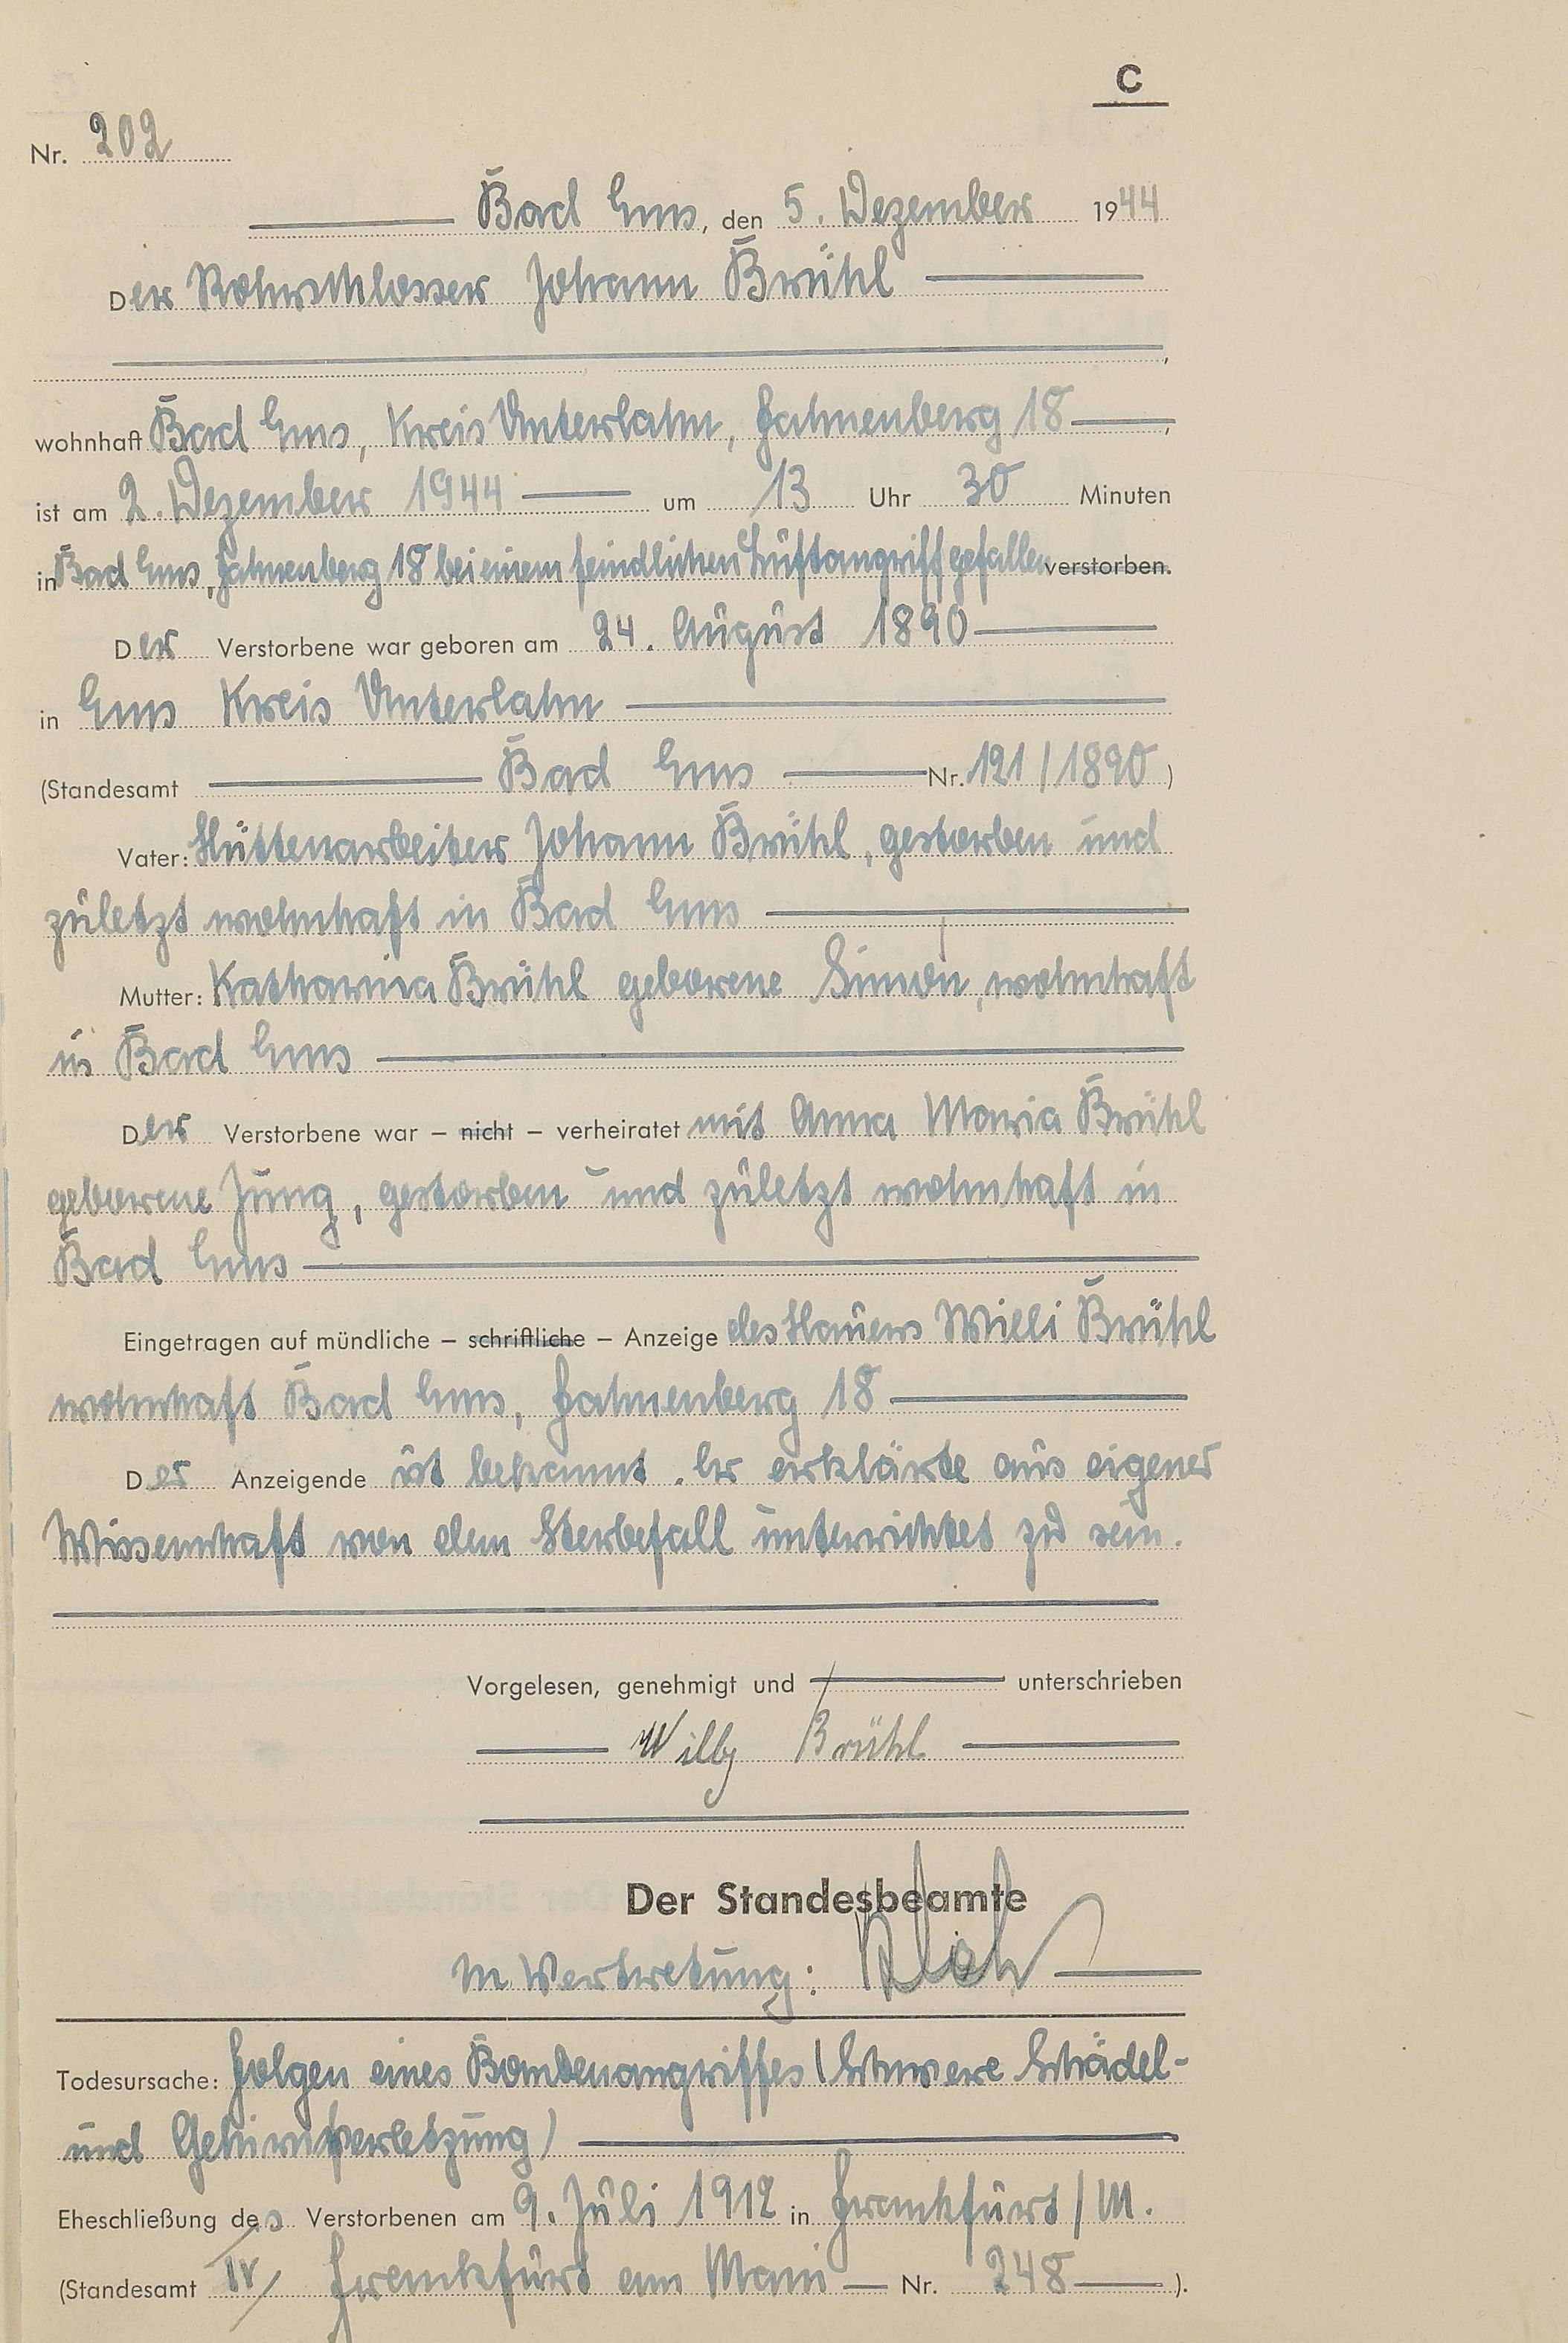 C
Nr. 202
Bad Ems, den 5. Dezember 1944
Der Rohrschlosser Johann Brühl
,
wohnhaft Bad Ems, Kreis Unterlahn, Fahnenberg 18,
ist am 2. Dezember 1944 um 13 Uhr 30 Minuten
in Bad Ems, Fahnenberg 18 bei einem feindlichen Luftangriff gefallen verstorben.
Der Verstorbene war geboren am 24. August 1890
in Ems Kreis Unterlahn
(Standesamt Bad Ems Nr. 121/1890)
Vater: Hüttenarbeiter Johann Brühl, gestorben und
zuletzt wohnhaft in Bad Ems
Mutter: Katharina Brühl geborene Simon, wohnhaft
in Bad Ems
Der Verstorbene war – nicht – verheiratet mit Anna Maria Brühl
geborene Jung, gestorben und zuletzt wohnhaft in
Bad Ems
Eingetragen auf mündliche – schriftliche – Anzeige des Hauers Willi Brühl
wohnhaft Bad Ems, Fahnenberg 18
Der Anzeigende ist bekannt. Er erklärte aus eigener
Wissenschaft von dem Sterbefall unterrichtet zu sein.
Vorgelesen, genehmigt und unterschrieben
Willy Brühl
Der Standesbeamte
In Vertretung:
Todesursache: Folgen eines Bombenangriffes (Schwere Schädel-
und Gehirnverletzung)
Eheschließung des Verstorbenen am 9. Juli 1912 in Frankfurt/M.
(Standesamt IV Frankfurt am Main Nr. 248).